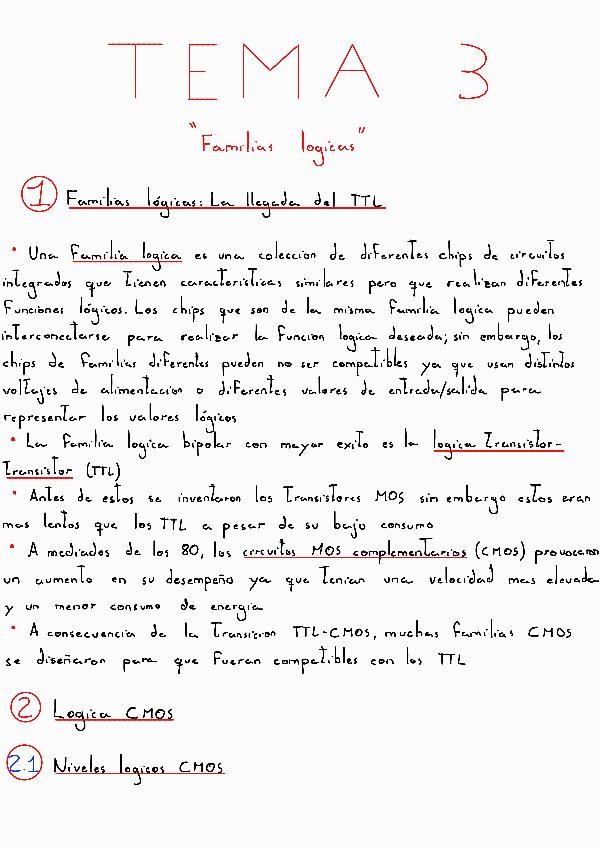 TEMA 3
"Familias logicas"
1 Familias lógicas: La llegada del TTL
• Una familia logica es una coleccion de diferentes chips de circuitos
integrados que tienen caracteristicas similares pero que realizan diferentes
funciones lógicos. Los chips que son de la misma familia logica pueden
interconectarse para realizar la funcion logica deseada; sin embargo, los
chips de familias diferentes pueden no ser compatibles ya que usan distintos
voltajes de alimentacion o diferentes valores de entrada/salida para
representar los valores lógicos
• La familia logica bipolar con mayor exito es la logica Transistor-
Transistor (TTL)
• Antes de estos se inventaron los Transistores MOS sin embargo estos eran
mas lentos que los TTL a pesar de su bajo consumo
• A mediados de los 80, los circuitos MOS complementarios (CMOS) provocaron
un aumento en su desempeño ya que tenian una velocidad mas elevada
y un menor consumo de energia
• A consecuencia de la Transicion TTL-CMOS, muchas familias CMOS
se diseñaron para que fueran compatibles con los TTL
2 Logica CMOS
2.1 Niveles logicos CMOS